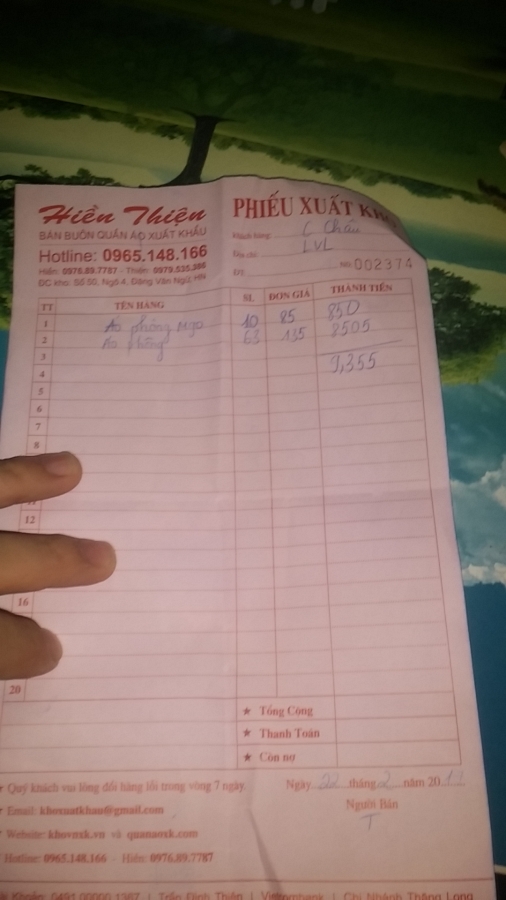 Hiền Thiện
BÁN BUÔN QUẦN ÁO XUẤT KHẨU
Hotline: 0965.148.166
Hiền: 0976.89.7787 - Thiện: 0979.535.386
ĐC kho: Số 50, Ngõ 4, Đặng Văn Ngữ, HN
PHIẾU XUẤT KHO
Khách hàng: C Châu
Địa chỉ: LVL
ĐT: No: 002374
TT TÊN HÀNG SL ĐƠN GIÁ THÀNH TIỀN
1 Áo phông Ngo 10 85 850
2 Áo phông 63 135 8505
3
4 9,355
5
6
7
8
12
16
20
★ Tổng Cộng
★ Thanh Toán
★ Còn nợ
Quý khách vui lòng đổi hàng lỗi trong vòng 7 ngày.
Ngày 22 tháng 2 năm 20
Email: khoxuatkhau@gmail.com
Người Bán
T
Website: khovnxk.vn và quanaoxk.com
Hotline: 0965.148.166 - Hiền: 0976.89.7787
Trần Đình Thiện | Vietcombank | Chi Nhánh Thăng Long